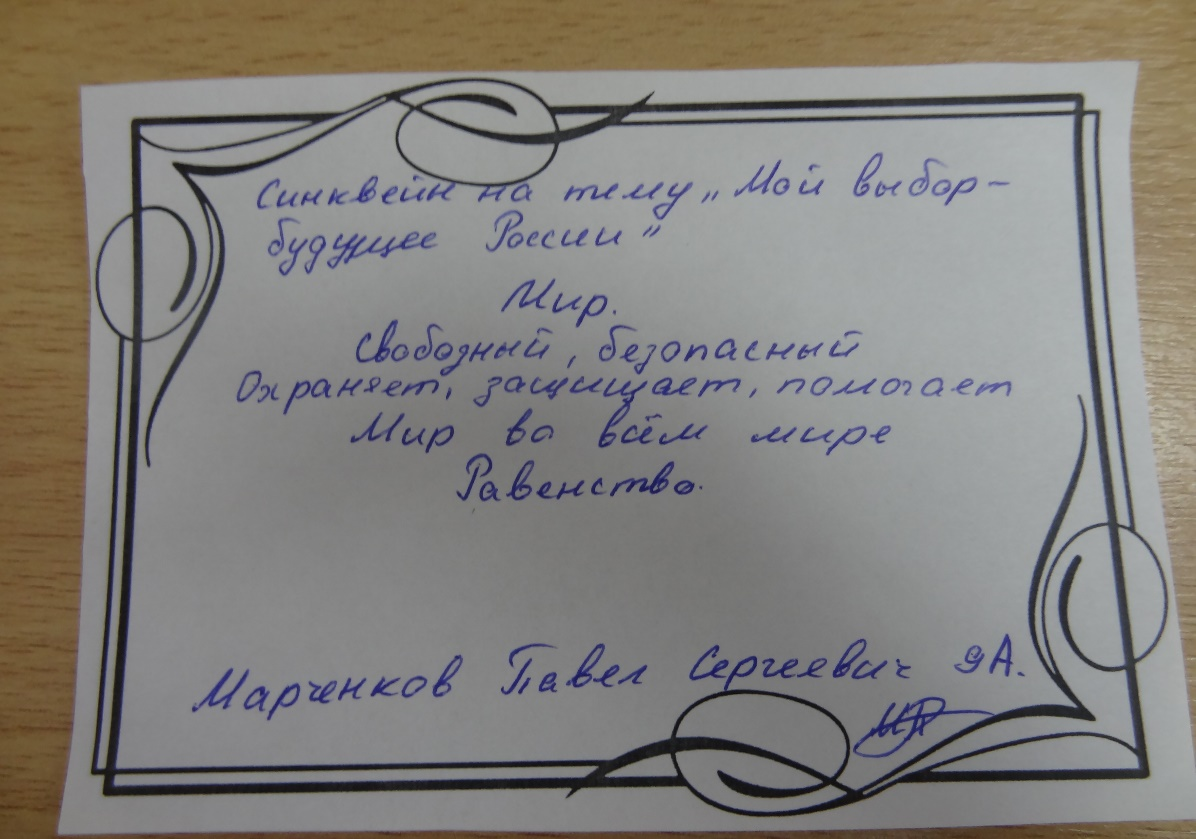 Синквейн на тему „Мой выбор-
будущее России"
Мир.
Свободный, безопасный
Охраняет, защищает, помогает
Мир во всём мире
Равенство.
Марченков Павел Сергеевич 9А.